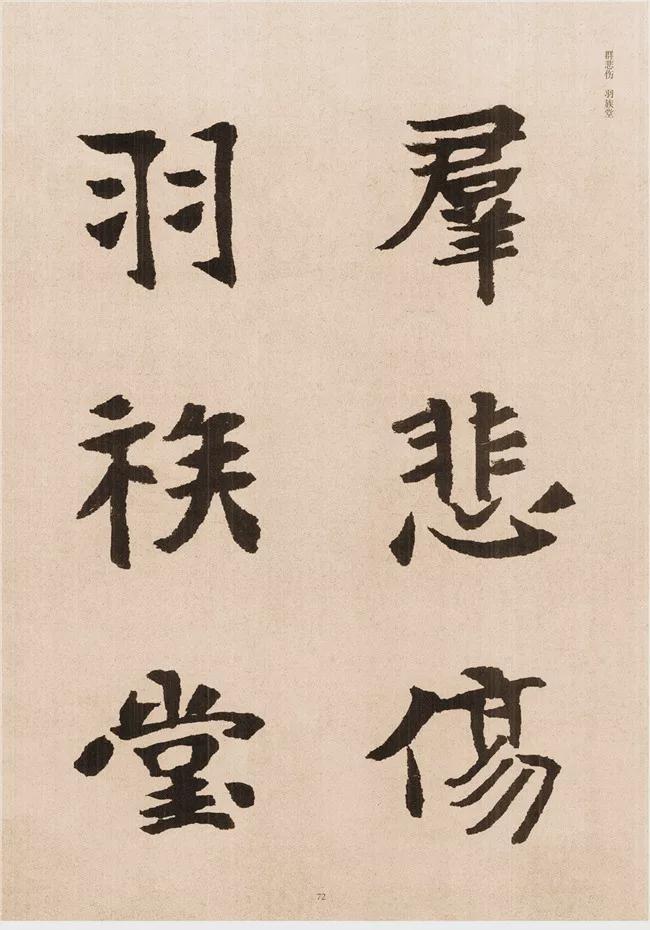 群悲伤 羽族堂
羣悲傷
羽族堂
72